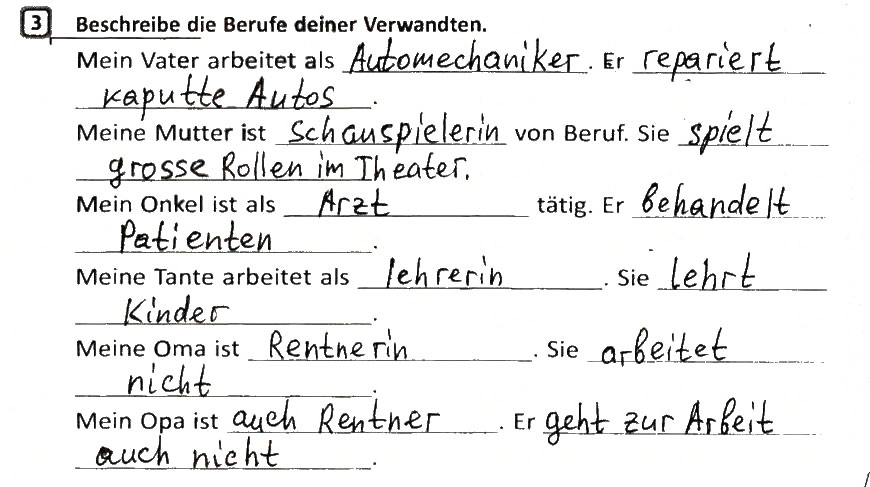 3 Beschreibe die Berufe deiner Verwandten.
Mein Vater arbeitet als Automechaniker. Er repariert
kaputte Autos.
Meine Mutter ist Schauspielerin von Beruf. Sie spielt
grosse Rollen im Theater.
Mein Onkel ist als Arzt tätig. Er behandelt
Patienten.
Meine Tante arbeitet als lehrerin. Sie lehrt
Kinder.
Meine Oma ist Rentnerin. Sie arbeitet
nicht.
Mein Opa ist auch Rentner. Er geht zur Arbeit
auch nicht.